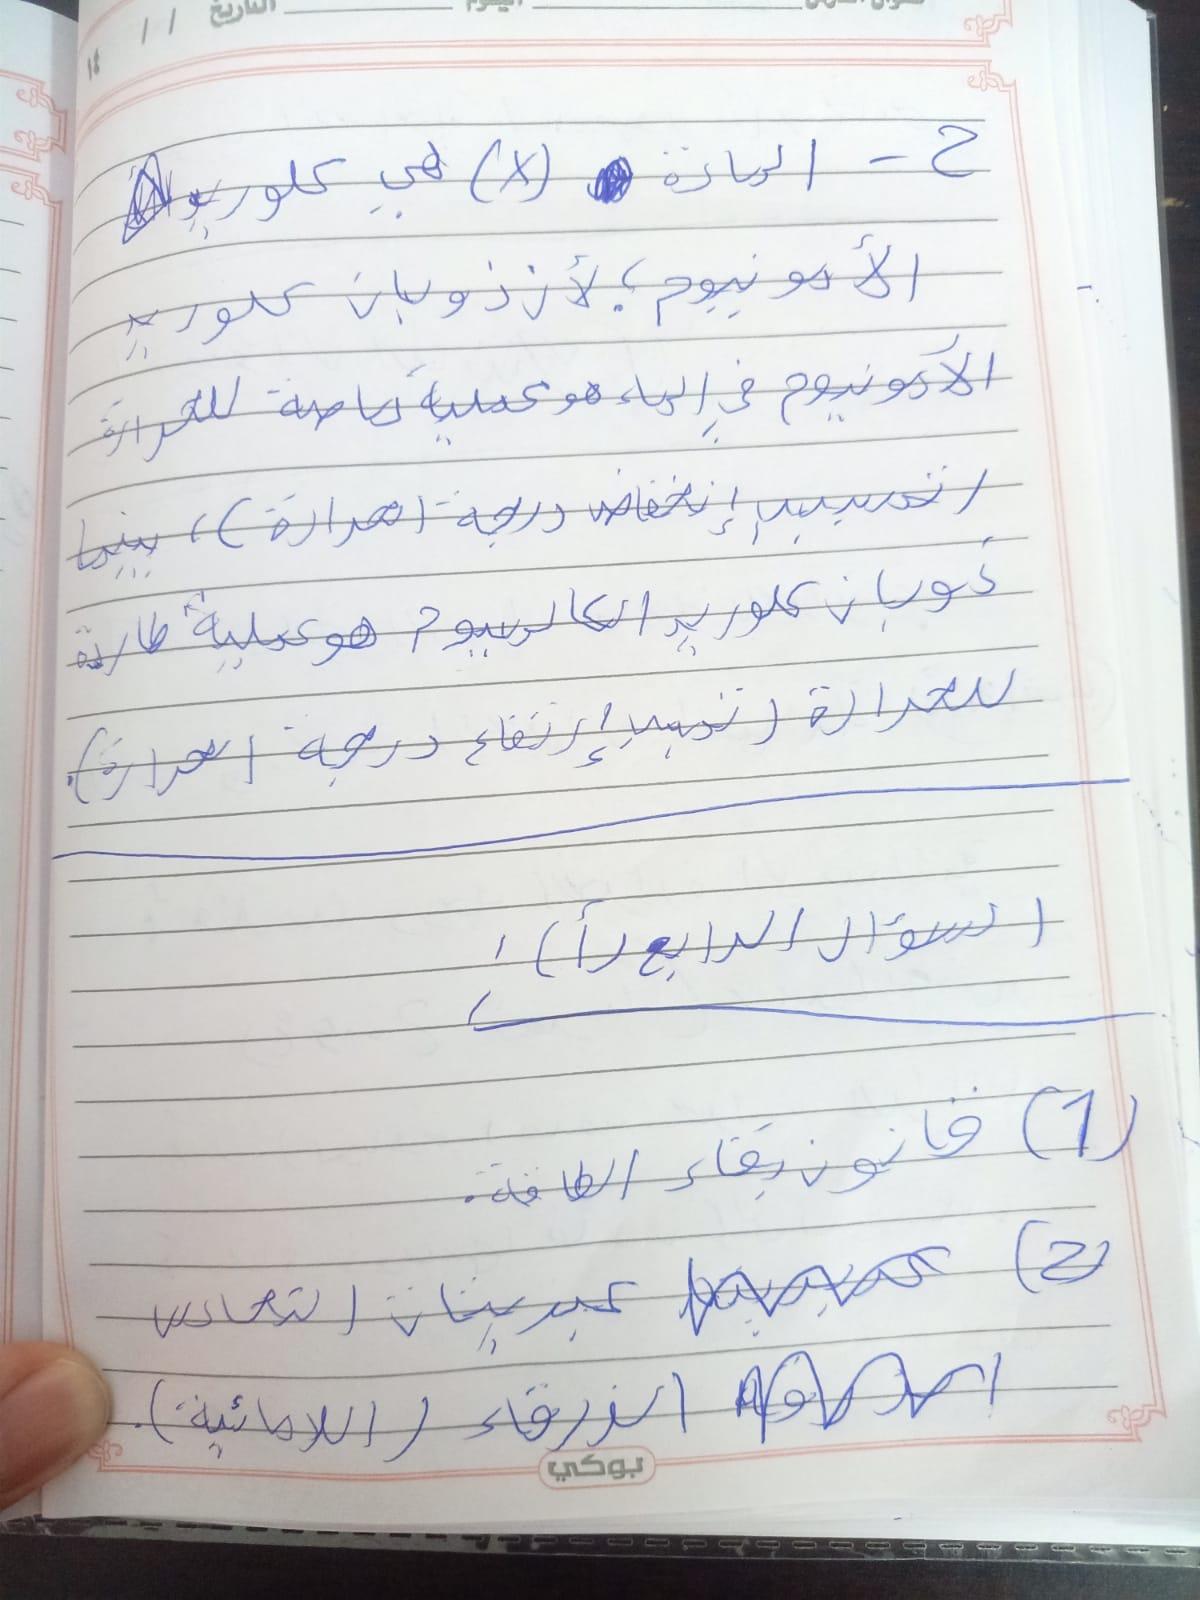 عنوان الدرس اليوم التاريخ / /
١٤
ح - المادة (X) هي كلوريد
الأمونيوم؛ لأن ذوبان كلوريد
الأمونيوم في الماء هو عملية ماصة للحرارة
(تسبب إنخفاض درجة الحرارة)، بينما
ذوبان كلوريد الكالسيوم هو عملية طاردة
للحرارة (تسبب إرتفاع درجة الحرارة).
السؤال الرابع (أ):
(1) قانون بقاء الطاقة.
(2) كبريتات النحاس
الزرقاء (المائية).
بوكي